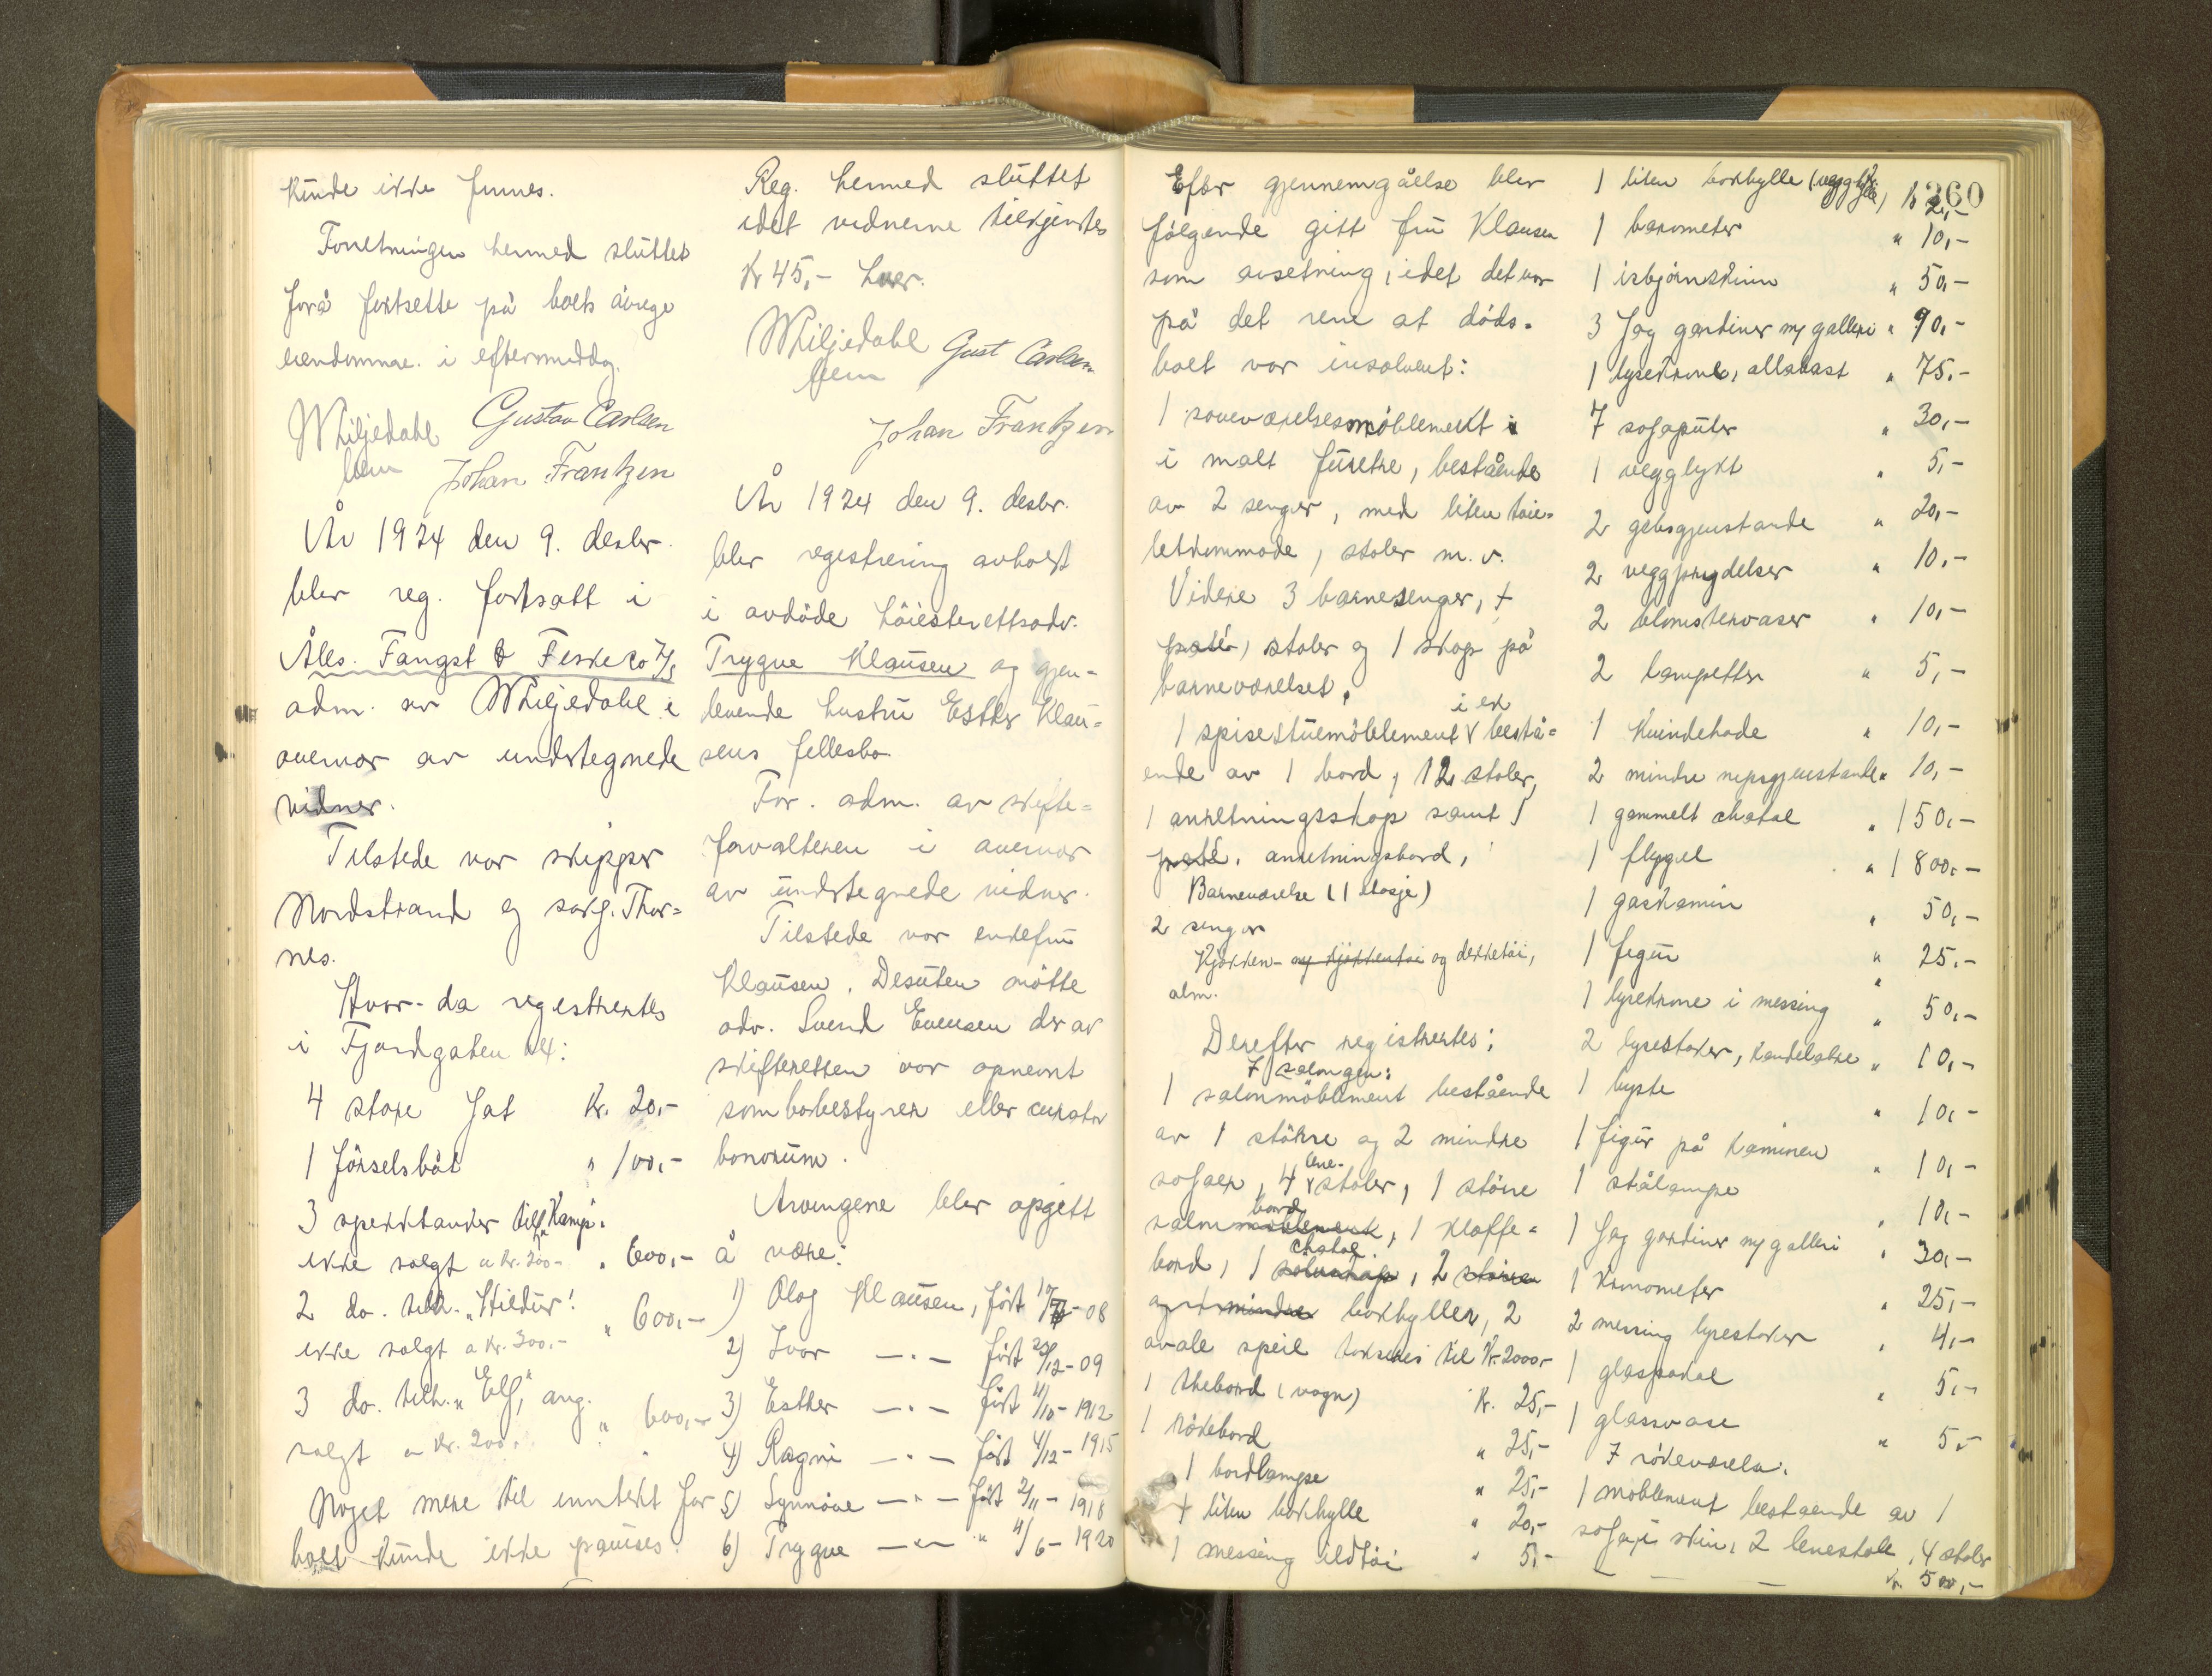 kunde ikke finnes.
Forretningen hermed sluttet
forå fortsette på boets øvrige
eiendommer i eftermiddag.
WLiljedahl Gustav Carlsen
Johan Frantzen
År 1924 den 9. desbr.
blev reg. fortsatt i
Åles. Fangst & Fiske Co A/S
adm. av WLiljedahl i
overvær av undertegnede
vidner.
Tilstede var skipper
Nordstrand og sakf. Thor-
nes.
Hvor da registrertes
i Fjordgaten 24:
4 store fat Kr. 20,-
1 førselsbåt " 100,-
3 spekktanker tilh. "Kamp".
ikke solgt a kr. 200,- " 600,-
2 do. tilh. "Hildur"
ikke solgt a kr. 300,- " 600,-
3 do. tilh. "Elf", ang.
solgt a kr. 200,- " 600,-
Noget mere til inntekt for
boet kunde ikke påvises.
Reg. hermed sluttet
idet vidnerne tilkjentes
Kr 45,- hver.
WLiljedahl Gust Carlsen
Johan Frantzen
År 1924 den 9. desbr.
blev registrering avholdt
i avdøde høiesterettsadv.
Trygve Klausen og gjen-
levende hustru Esther Klau-
sens fellesbo.
For. adm. av skifte-
forvalteren i overvær
av undertegnede vidner.
Tilstede var enkefru
Klausen. Desuten møtte
adv. Svend Evensen der av
skifteretten var opnevnt
som bobestyrer eller curator
bonorum.
Arvingene blev opgitt
å være:
1) Olag Klausen, født -08
2) Ivar -"- født 29/12-09
3) Esther -"- født 4/10-1912
4) Ragni -"- født 4/12-1915
5) Synnøve -"- født 2/11-1918
6) Trygve -"- " 4/6-1920
260
Efter gjennemgåelse blev
følgende gitt fru Klausen
som avsetning, idet det var
på det rene at døds-
boet var insolvent:
1 soveværelsesmøblement
i malt furetre, bestående
av 2 senger, med liten toie-
letkommode, stoler m.v.
Videre 3 barnesenger,
stoler og 1 skap på
barneværelset.
i ek
1 spisestuemøblement bestå-
ende av 1 bord, 12 stoler,
1 anretningsskap samt 1
anretningsbord,
Barneværelse (1 etasje)
2 senger
Kjøkken- og kjøkkentøi og dekketøi,
alm.
Derefter registrertes:
I salongen:
1 salonmøblement bestående
av 1 større og 2 mindre
lene-
sofaer, 4 stoler, 1 større
bord
salonmøblement, 1 kaffe-
chatol
bord, 1 , 2 større
og mindre bokhyller, 2
ovale speil takseres til kr. 2000,-
1 thebord (vogn) kr. 25,-
1 røkebord " 25,-
1 bordlampe " 25,-
1 liten bokhylle " 20,-
1 messing ildtøi " 5,-
1 liten bokhylle (vegghylle) kr 2,-
1 barometer " 10,-
1 isbjørnskinn " 50,-
3 fag gardiner m/ galleri " 90,-
1 lysekrone, allabast " 75,-
7 sofaputer " 30,-
1 vegglykt " 5,-
2 gibsgjenstande " 20,-
2 veggprydelser " 10,-
2 blomstervaser " 10,-
2 lampetter " 5,-
1 Kvindehode " 10,-
2 mindre nipsgjenstande " 10,-
1 gammelt chatol " 150,-
1 flygel " 1800,-
1 gaskamin " 50,-
1 figur " 25,-
1 lysekrone i messing " 50,-
2 lysestaker, kandelabre " 10,-
1 byste " 10,-
1 figur på kaminen " 10,-
1 stålampe " 10,-
1 fag gardiner m/ galleri " 30,-
1 kronometer " 25,-
2 messing lysestaker " 4,-
1 glasspokal " 5,-
1 glassvase " 5,-
I røkeværelse:
1 møblement bestående av 1
sofa i skinn, 2 lenestole, 4 stoler
kr. 500,-